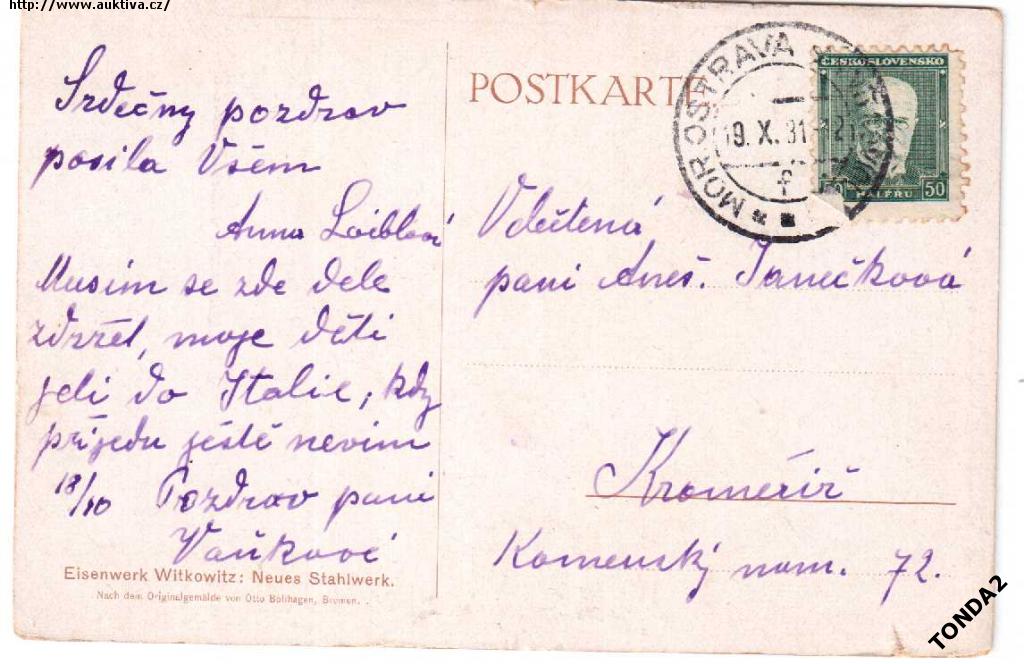 http://www.auktiva.cz/
Srdečný pozdrav
posila Všem
Anna Loiblová
Musim se zde dele
zdržet, moje děti
jeli do Italie, kdy
přijedu ještě nevim
18/10 Pozdrav pani
Vaňkové
Eisenwerk Witkowitz: Neues Stahlwerk.
Nach dem Originalgemälde von Otto Bollhagen, Bremen.
POSTKARTE
MOR. OSTRAVA
19. X. 31
ČESKOSLOVENSKO
50 HALÉŘU 50
Vdečtená
pani Aneš. Janečková
Kroměřiř
Komenský nam. 72.
TONDA2